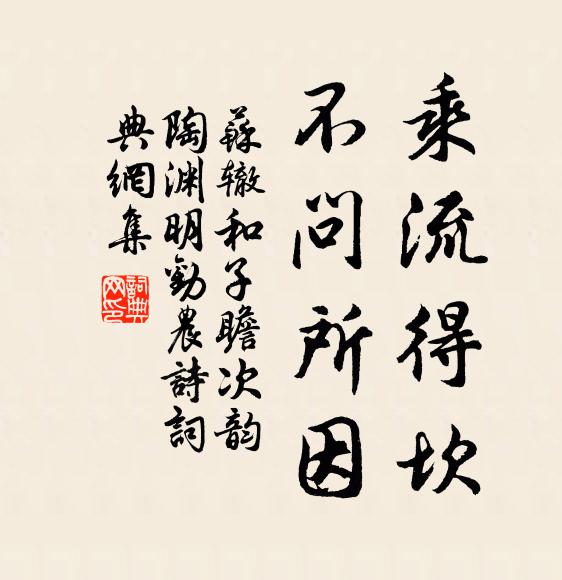 乘流得坎
不问所因
蘇辙和子瞻次韵
陶渊明勸農詩詞
典網集
詞典网印